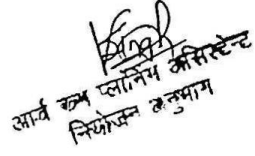 आर्क कम प्लानिंग असिस्टेन्ट
नियोजन अनुभाग